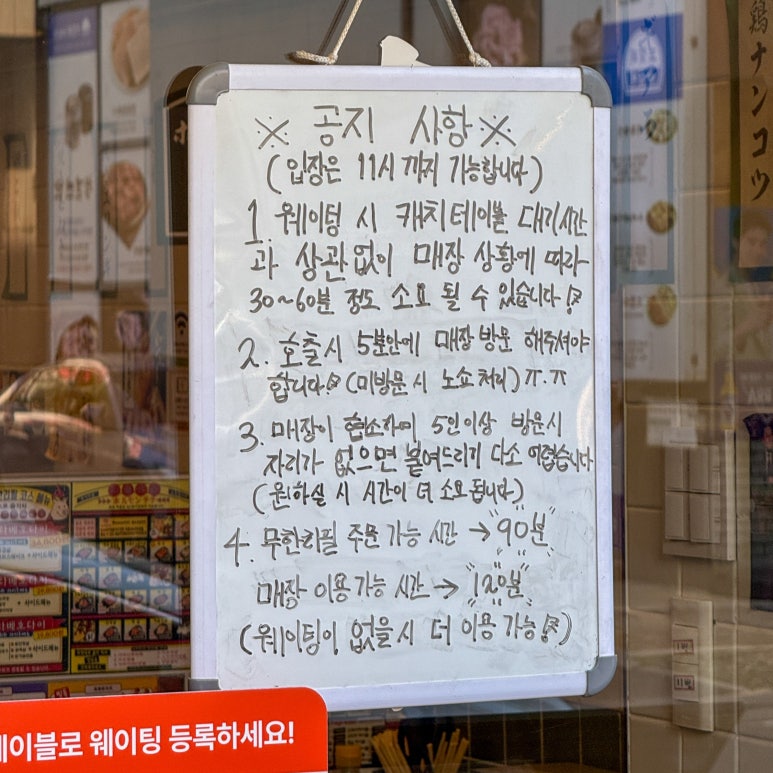 ※ 공지 사항 ※
(입장은 11시 까지 가능합니다)
1. 웨이팅 시 캐치테이블 대기시간
과 상관없이 매장 상황에 따라
30~60분 정도 소요 될 수 있습니다!
2. 호출시 5분안에 매장 방문 해주셔야
합니다! (미방문 시 노쇼 처리) ㅠ.ㅠ
3. 매장이 협소하여 5인이상 방문시
자리가 없으면 붙여드리기 다소 어렵습니다
(원하실 시 시간이 더 소요 됩니다)
4. 무한리필 주문 가능 시간 → "90분"
매장 이용 가능 시간 → "120분"
(웨이팅이 없을 시 더 이용 가능!)
테이블로 웨이팅 등록하세요!
鶏ナンコツ